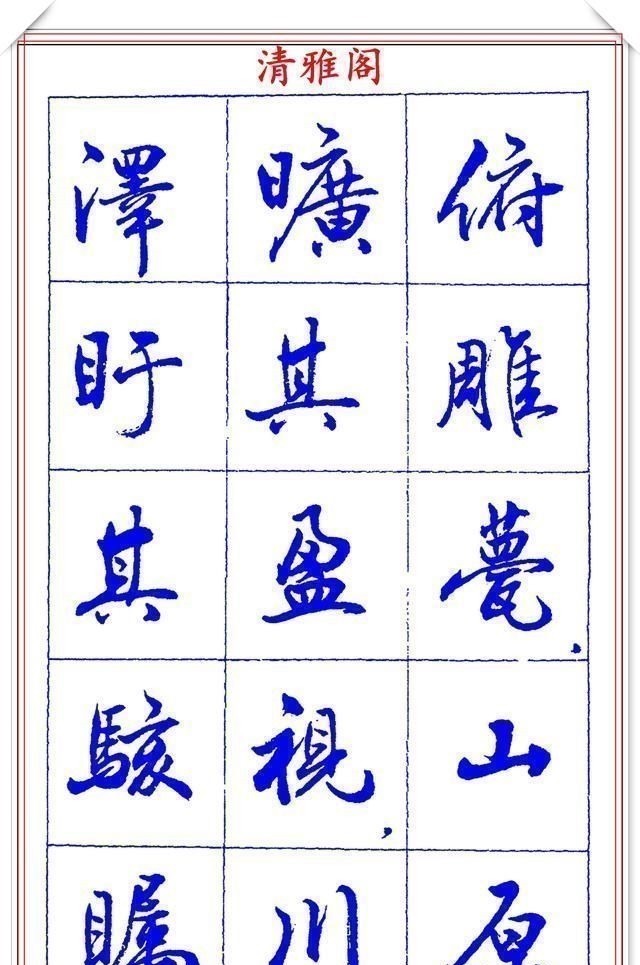 清雅阁
俯雕甍，山原
曠其盈視，川
澤盱其駭矚